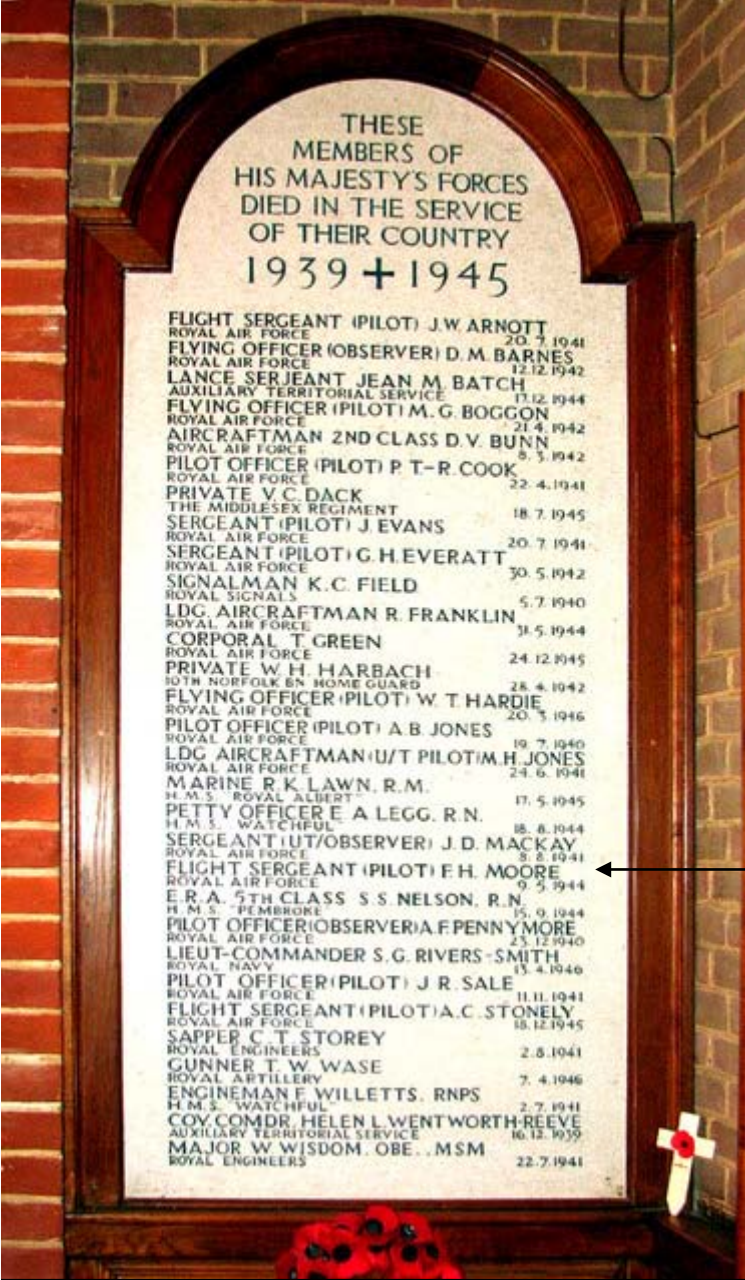 THESE
MEMBERS OF
HIS MAJESTY'S FORCES
DIED IN THE SERVICE
OF THEIR COUNTRY
1939 + 1945
FLIGHT SERGEANT (PILOT) J.W. ARNOTT
ROYAL AIR FORCE 20.7.1941
FLYING OFFICER (OBSERVER) D.M. BARNES
ROYAL AIR FORCE 12.12.1942
LANCE SERJEANT JEAN M. BATCH
AUXILIARY TERRITORIAL SERVICE 17.12.1944
FLYING OFFICER (PILOT) M.G. BOGGON
ROYAL AIR FORCE 21.4.1942
AIRCRAFTMAN 2ND CLASS D.V. BUNN
ROYAL AIR FORCE 8.3.1942
PILOT OFFICER (PILOT) P.T-R. COOK
ROYAL AIR FORCE 22.4.1941
PRIVATE V.C. DACK
THE MIDDLESEX REGIMENT 18.7.1945
SERGEANT (PILOT) J. EVANS
ROYAL AIR FORCE 20.7.1941
SERGEANT (PILOT) G.H. EVERATT
ROYAL AIR FORCE 30.5.1942
SIGNALMAN K.C. FIELD
ROYAL SIGNALS 5.7.1940
LDG. AIRCRAFTMAN R. FRANKLIN
ROYAL AIR FORCE 31.5.1944
CORPORAL T. GREEN
ROYAL AIR FORCE 24.12.1945
PRIVATE W.H. HARBACH
10TH NORFOLK BN HOME GUARD 28.4.1942
FLYING OFFICER (PILOT) W.T. HARDIE
ROYAL AIR FORCE 20.3.1946
PILOT OFFICER (PILOT) A.B. JONES
ROYAL AIR FORCE 19.7.1940
LDG AIRCRAFTMAN (U/T PILOT) M.H. JONES
ROYAL AIR FORCE 24.6.1941
MARINE R.K. LAWN, R.M.
H.M.S. "ROYAL ALBERT" 17.5.1945
PETTY OFFICER E.A. LEGG. R.N.
H.M.S. "WATCHFUL" 18.8.1944
SERGEANT (UT/OBSERVER) J.D. MACKAY
ROYAL AIR FORCE 8.8.1941
FLIGHT SERGEANT (PILOT) F.H. MOORE
ROYAL AIR FORCE 9.5.1944
E.R.A. 5TH CLASS S.S. NELSON, R.N.
H.M.S. "PEMBROKE" 15.9.1944
PILOT OFFICER (OBSERVER) A.F. PENNYMORE
ROYAL AIR FORCE 23.12.1940
LIEUT-COMMANDER S.G. RIVERS-SMITH
ROYAL NAVY 13.4.1946
PILOT OFFICER (PILOT) J.R. SALE
ROYAL AIR FORCE 11.11.1941
FLIGHT SERGEANT (PILOT) A.C. STONELY
ROYAL AIR FORCE 18.12.1945
SAPPER C.T. STOREY
ROYAL ENGINEERS 2.8.1941
GUNNER T.W. WASE
ROYAL ARTILLERY 7.4.1946
ENGINEMAN F. WILLETTS, RNPS
H.M.S. "WATCHFUL" 2.7.1941
COY. COMDR. HELEN L. WENTWORTH-REEVE
AUXILIARY TERRITORIAL SERVICE 16.12.1939
MAJOR W. WISDOM. OBE., MSM
ROYAL ENGINEERS 22.7.1941